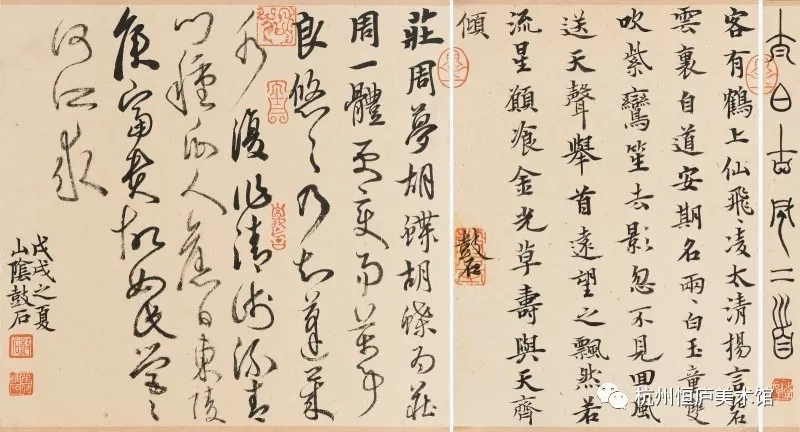 太白古風二首
客有鶴上仙飛凌太清揚言碧
雲裏自道安期名兩〻白玉童雙
吹紫鸞笙去影忽不見回風
送天聲舉首遠望之飄然若
流星願飡金光草壽與天齊
傾
鼓石
莊周夢胡蝶胡蝶為莊
周一體更變易萬事
良悠〻乃知蓬萊
水復作清淺流青
門種瓜人舊日東陵
侯富貴故如此營〻
何所求
戊戌之夏
山陰鼓石
杭州恒庐美术馆